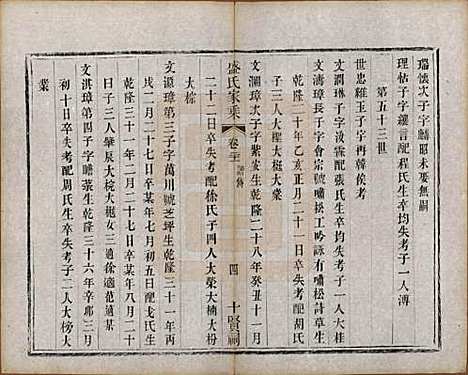 瑞懷次子字麟昭未娶無嗣
理帖子字鑵言配程氏生卒均失考子一人溥
第五十三世
世忠繼玉子字再韓俟考
文潤琳子字汝霖配張氏生卒均失考子一人大桂
文濤璋長子字會宗號嘯松工吟詠有嘯松詩草生
乾隆二十年乙亥正月二十一日卒失考配胡氏
子三人大榿大梃大業
文瀾璋次子字紫安生乾隆二十八年癸丑十一月
二十二日卒失考配徐氏子四人大榮大楠大枬
大棕
文瀛璋第三子字萬川號芝坪生乾隆三十一年丙
戌二月二十七日卒某年七月初五日配戈氏生
乾隆三十一年二月二十七日卒某年八月二十
日子三人享臯大椀大椒女三適徐適范適某
文淇璋第四子字瞻菉生乾隆三十六年辛卯三月
初十日卒失考配周氏生卒失考子二人大榜大
業
盛氏家乘
卷三
四
十賢祠